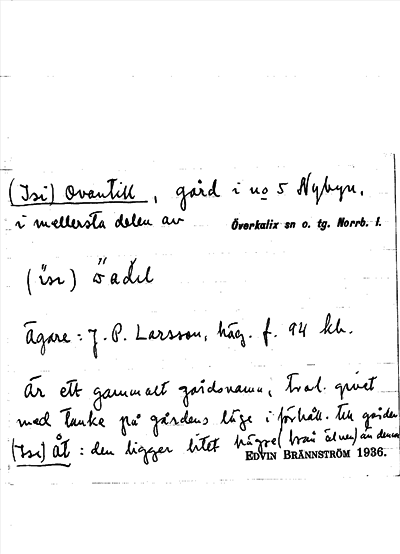 (Isi) Ovantill, gård i no 5 Nybyn,
i mellersta delen av Överkalix sn o. tg. Norrb. l.
(ïsi)
Ägare: J. P. Larsson, häg. f. 94 kh.
Är ett gammalt gårdsnamn, trol. givet
med tanke på gårdens läge i förhåll. till gården
(Isi) Åt : den ligger litet högre (från älven) än denna
EDVIN BRÄNNSTRÖM 1936.